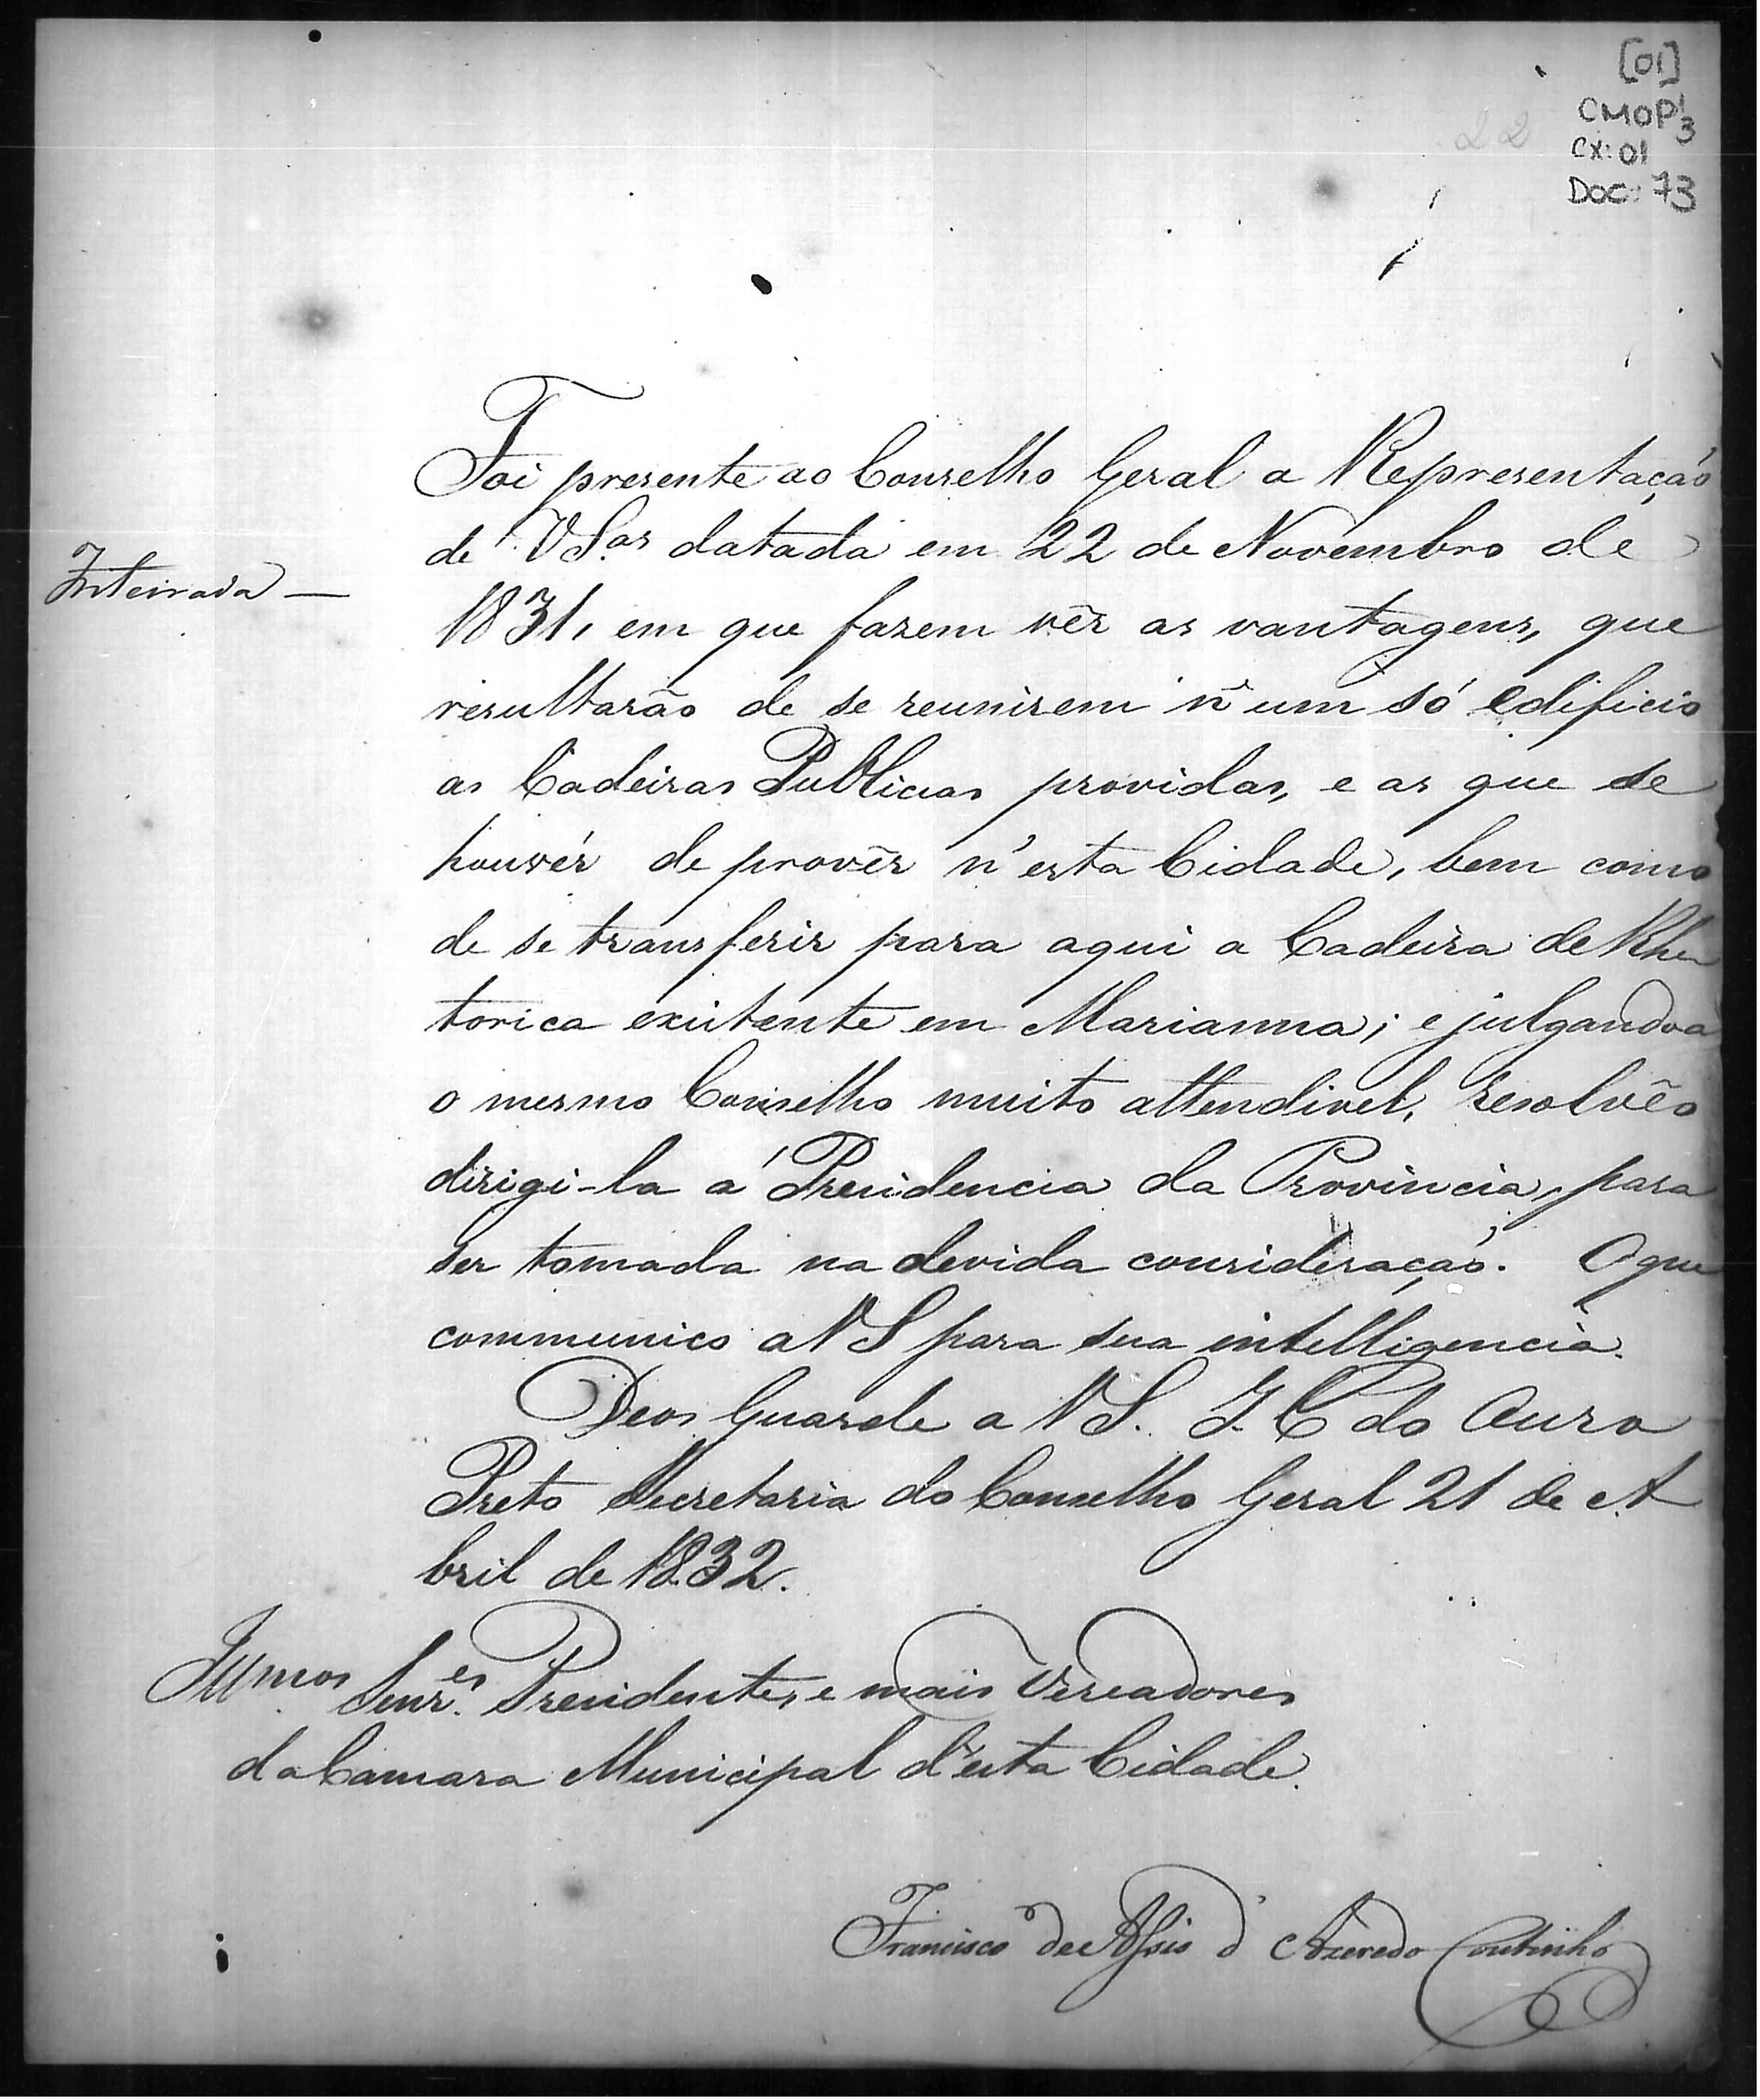 [01]
CMOP 1/3
CX: 01
DOC: 73
22
Foi presente ao Conselho Geral a Representação
de VS.as datada em 22 de Novembro de
Inteirada —
1831, em que fazem vêr as vantagens, que
resultarão de se reunirem n'um só edificio
as Cadeiras Publicas providas, e as que se
houvér de provêr n'esta Cidade, bem como
de se transferir para aqui a Cadeira de Rhe
torica existente em Marianna; e julgandoa
o mesmo Conselho muito attendivel, resolvêo
dirigi-la á Presidencia da Provincia, para
ser tomada na devida consideração. O que
communico a VS para sua intelligencia.
Deos Guarde a VS. I. C do Ouro
Preto Secretaria do Conselho Geral 21 de A
bril de 1832.
Illmos Senr.es Presidente, e mais Vereadores
da Camara Municipal d'esta Cidade.
Francisco de Assis d'Azeredo Coutinho